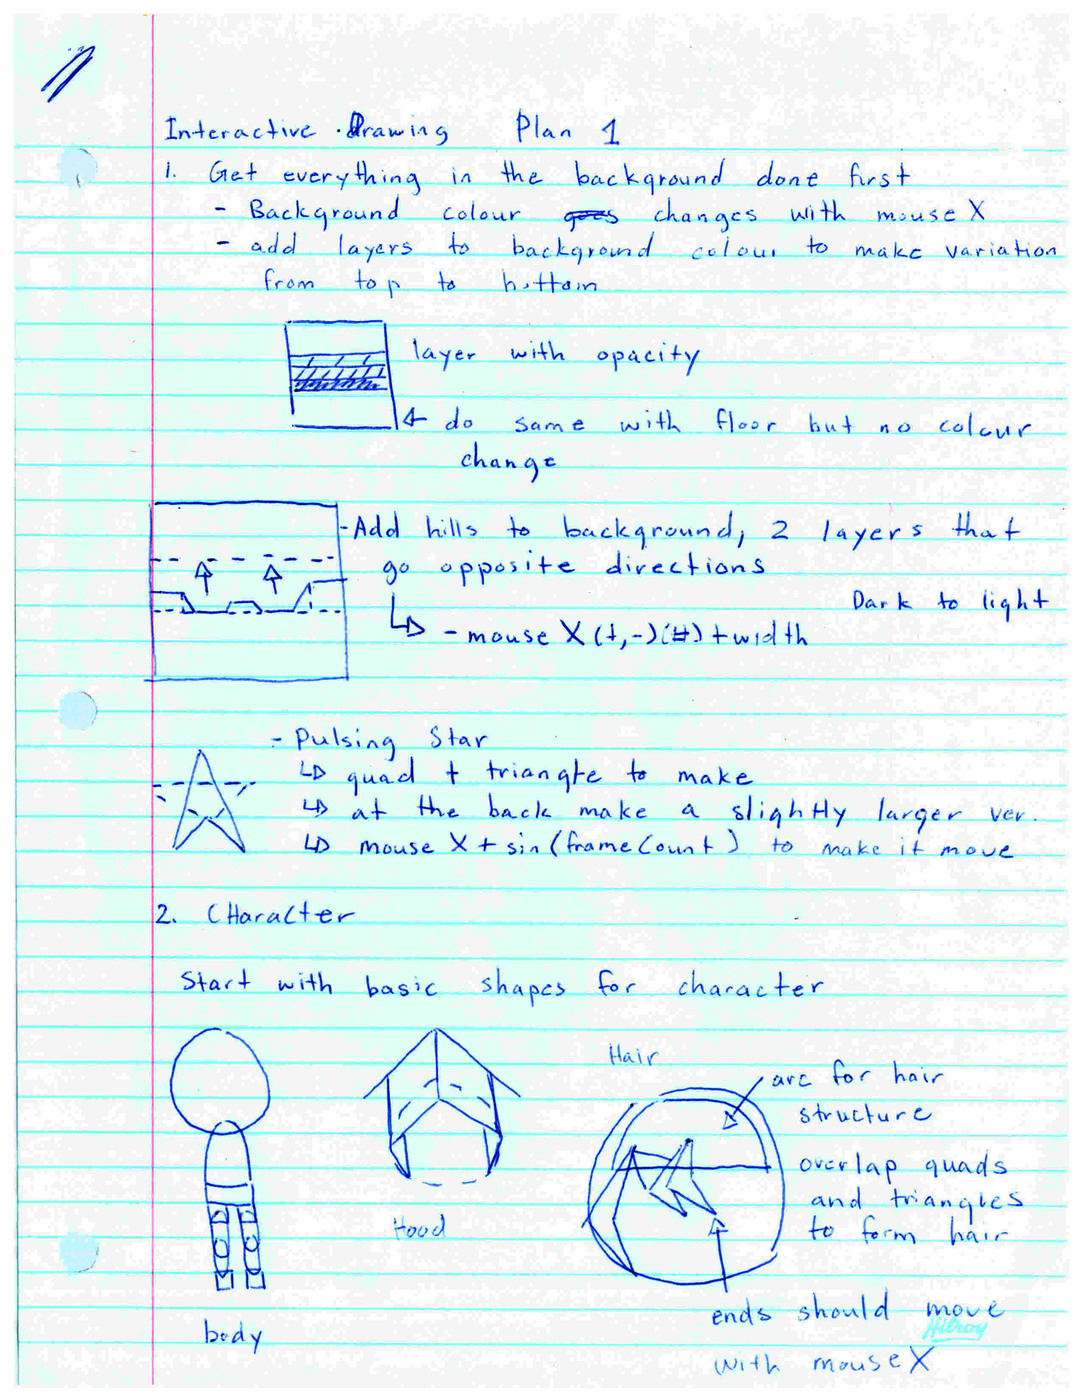 Interactive Drawing Plan 1
1. Get everything in the background done first
- Background colour goes changes with mouse X
- add layers to background colour to make variation
from top to bottom
layer with opacity
do same with floor but no colour
change
- Add hills to background, 2 layers that
go opposite directions
Dark to light
- mouse X (+,-)(#) + width
- Pulsing Star
quad + triangle to make
at the back make a slightly larger ver.
mouse X + sin(frameCount) to make it move
2. Character
Start with basic shapes for character
Hair
arc for hair
structure
overlap quads
and triangles
to form hair
Hood
ends should move
with mouse X
body
Hilroy